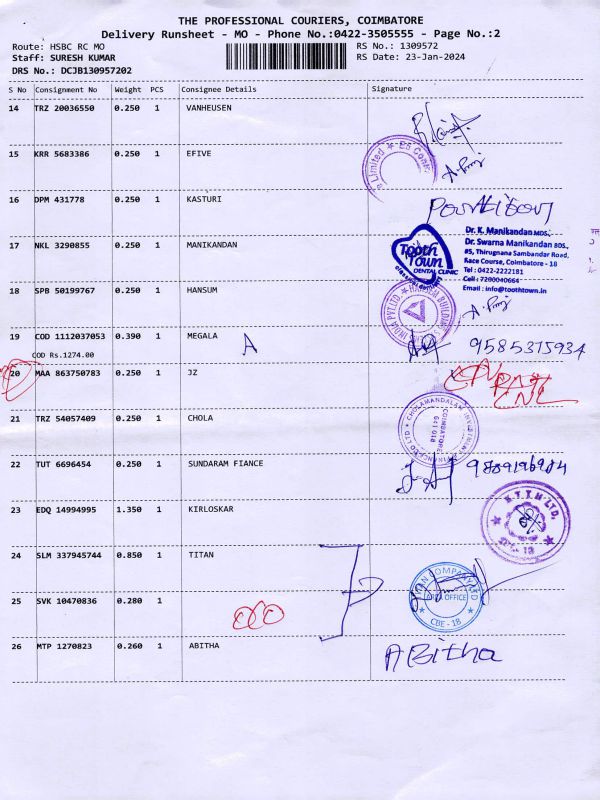 THE PROFESSIONAL COURIERS, COIMBATORE
Delivery Runsheet - MO - Phone No.:0422-3505555 - Page No.:2
Route: HSBC RC MO
RS No.: 1309572
Staff: SURESH KUMAR
RS Date: 23-Jan-2024
DRS No.: DCJB130957202
S No Consignment No Weight PCS Consignee Details Signature
14 TRZ 20036550 0.250 1 VANHEUSEN
15 KRR 5683386 0.250 1 EFIVE
Limited * E5 Con
16 DPM 431778 0.250 1 KASTURI
17 NKL 3290855 0.250 1 MANIKANDAN
Tooth Town
DENTAL CLINIC
Dr. K. Manikandan MDS.,
Dr. Swarna Manikandan BDS.,
#5, Thirugnana Sambandar Road,
Race Course, Coimbatore - 18
Tel : 0422-2222181
Cell : 7200040664
Email : info@toothtown.in
18 SPB 50199767 0.250 1 HANSUM
INDIA PVT.LTD.
19 COD 1112037053 0.390 1 MEGALA A 9585375934
COD Rs.1274.00
20 MAA 863750783 0.250 1 JZ
21 TRZ 54057409 0.250 1 CHOLA
COIMBATORE
641 018
22 TUT 6696454 0.250 1 SUNDARAM FIANCE
23 EDQ 14994995 1.350 1 KIRLOSKAR
24 SLM 337945744 0.850 1 TITAN
COMPANY LTD
OFFICE
CBE - 18
25 SVK 10470836 0.280 1
26 MTP 1270823 0.260 1 ABITHA ABitha